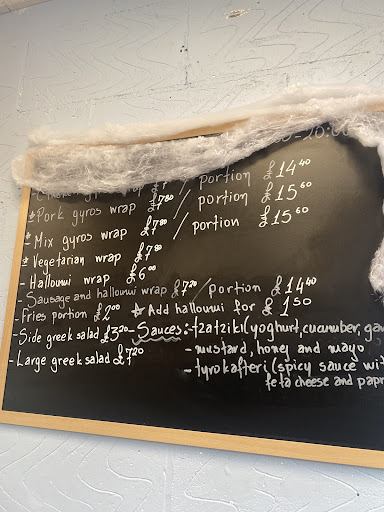 -20:00
gyros wrap / portion £14⁴⁰
*Pork gyros wrap £7⁸⁰ / portion £15⁶⁰
* Mix gyros wrap £7⁸⁰ / portion £15⁶⁰
* Vegetarian wrap £7⁸⁰
- Halloumi wrap £6⁰⁰
- Sausage and halloumi wrap £7²⁰ / portion £14⁴⁰
- Fries portion £2⁰⁰ * Add halloumi for £1⁵⁰
- Side greek salad £3²⁰ - Sauces:-tzatziki (yoghurt, cucumber, ga
- Large greek salad £7²⁰ - mustard, honey and mayo
- tyrokafteri (spicy sauce wit
feta cheese and papr